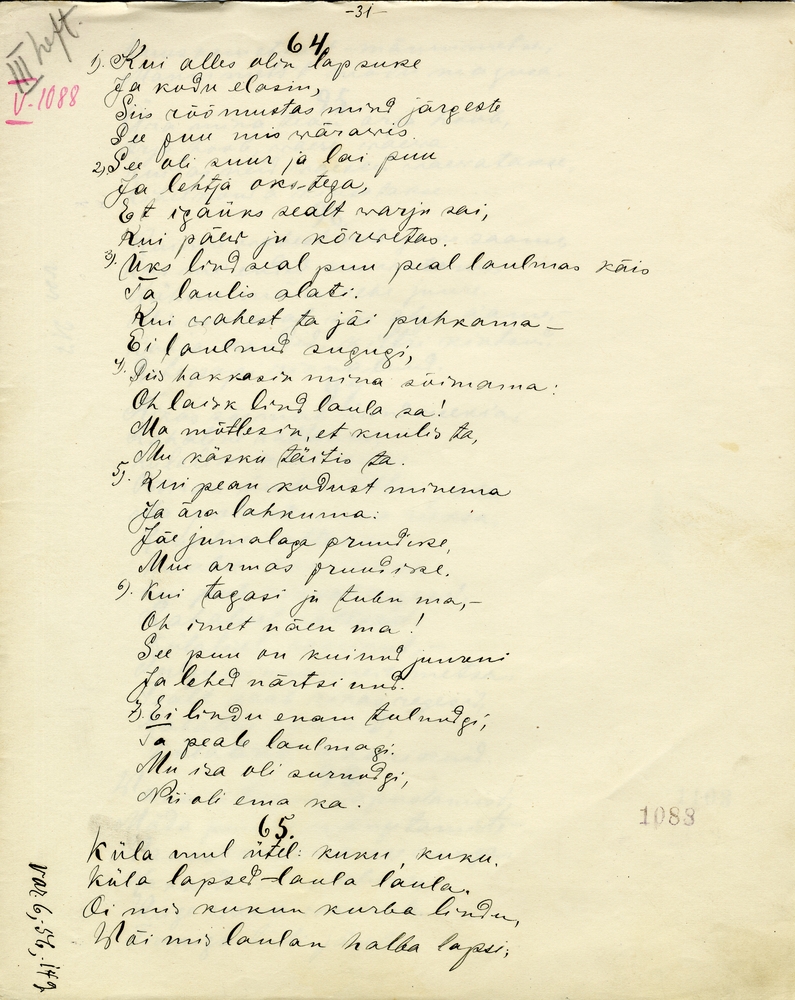 -31-
III heft.
V-1088
64
1). Kui alles olin lapsuke
Ja kodu elasin,
Siis rõõmustas mind järgeste
See puu mis wärawis.
2) See oli suur ja lai puu
Ja lehtja oks-tega,
Et igaüks sealt warju sai,
Kui päew ju kõrwetas.
3). Üks lind seal puu peal laulmas käis
Ta laulis alati.
Kui wahest ta jäi puhkama –
Ei laulnud sugugi,
4). Siis hakkasin mina sõimama:
Oh laisk lind laula sa!
Ma mõtlesin, et kuulis ta,
Mu käsku täitis ta.
5). Kui pean kodust minema
Ja ära lahkuma:
Jäe jumalaga pruudike,
Muu armas pruudike.
6). Kui tagasi ju tulen ma,–
Oh imet näen ma!
See puu on kuinud juureni
Ja lehed närtsinud.
7. Ei lindu enam tulnudgi,
Ta peale laulmagi.
Mu isa oli surnudgi,
Nii oli ema ka.
1088
65.
Küla mul ütel: kuku, kuku.
Küla lapsed–laula laula.
Oi mis kukun kurba lindu,
Wõi mis laulan halba lapsi;